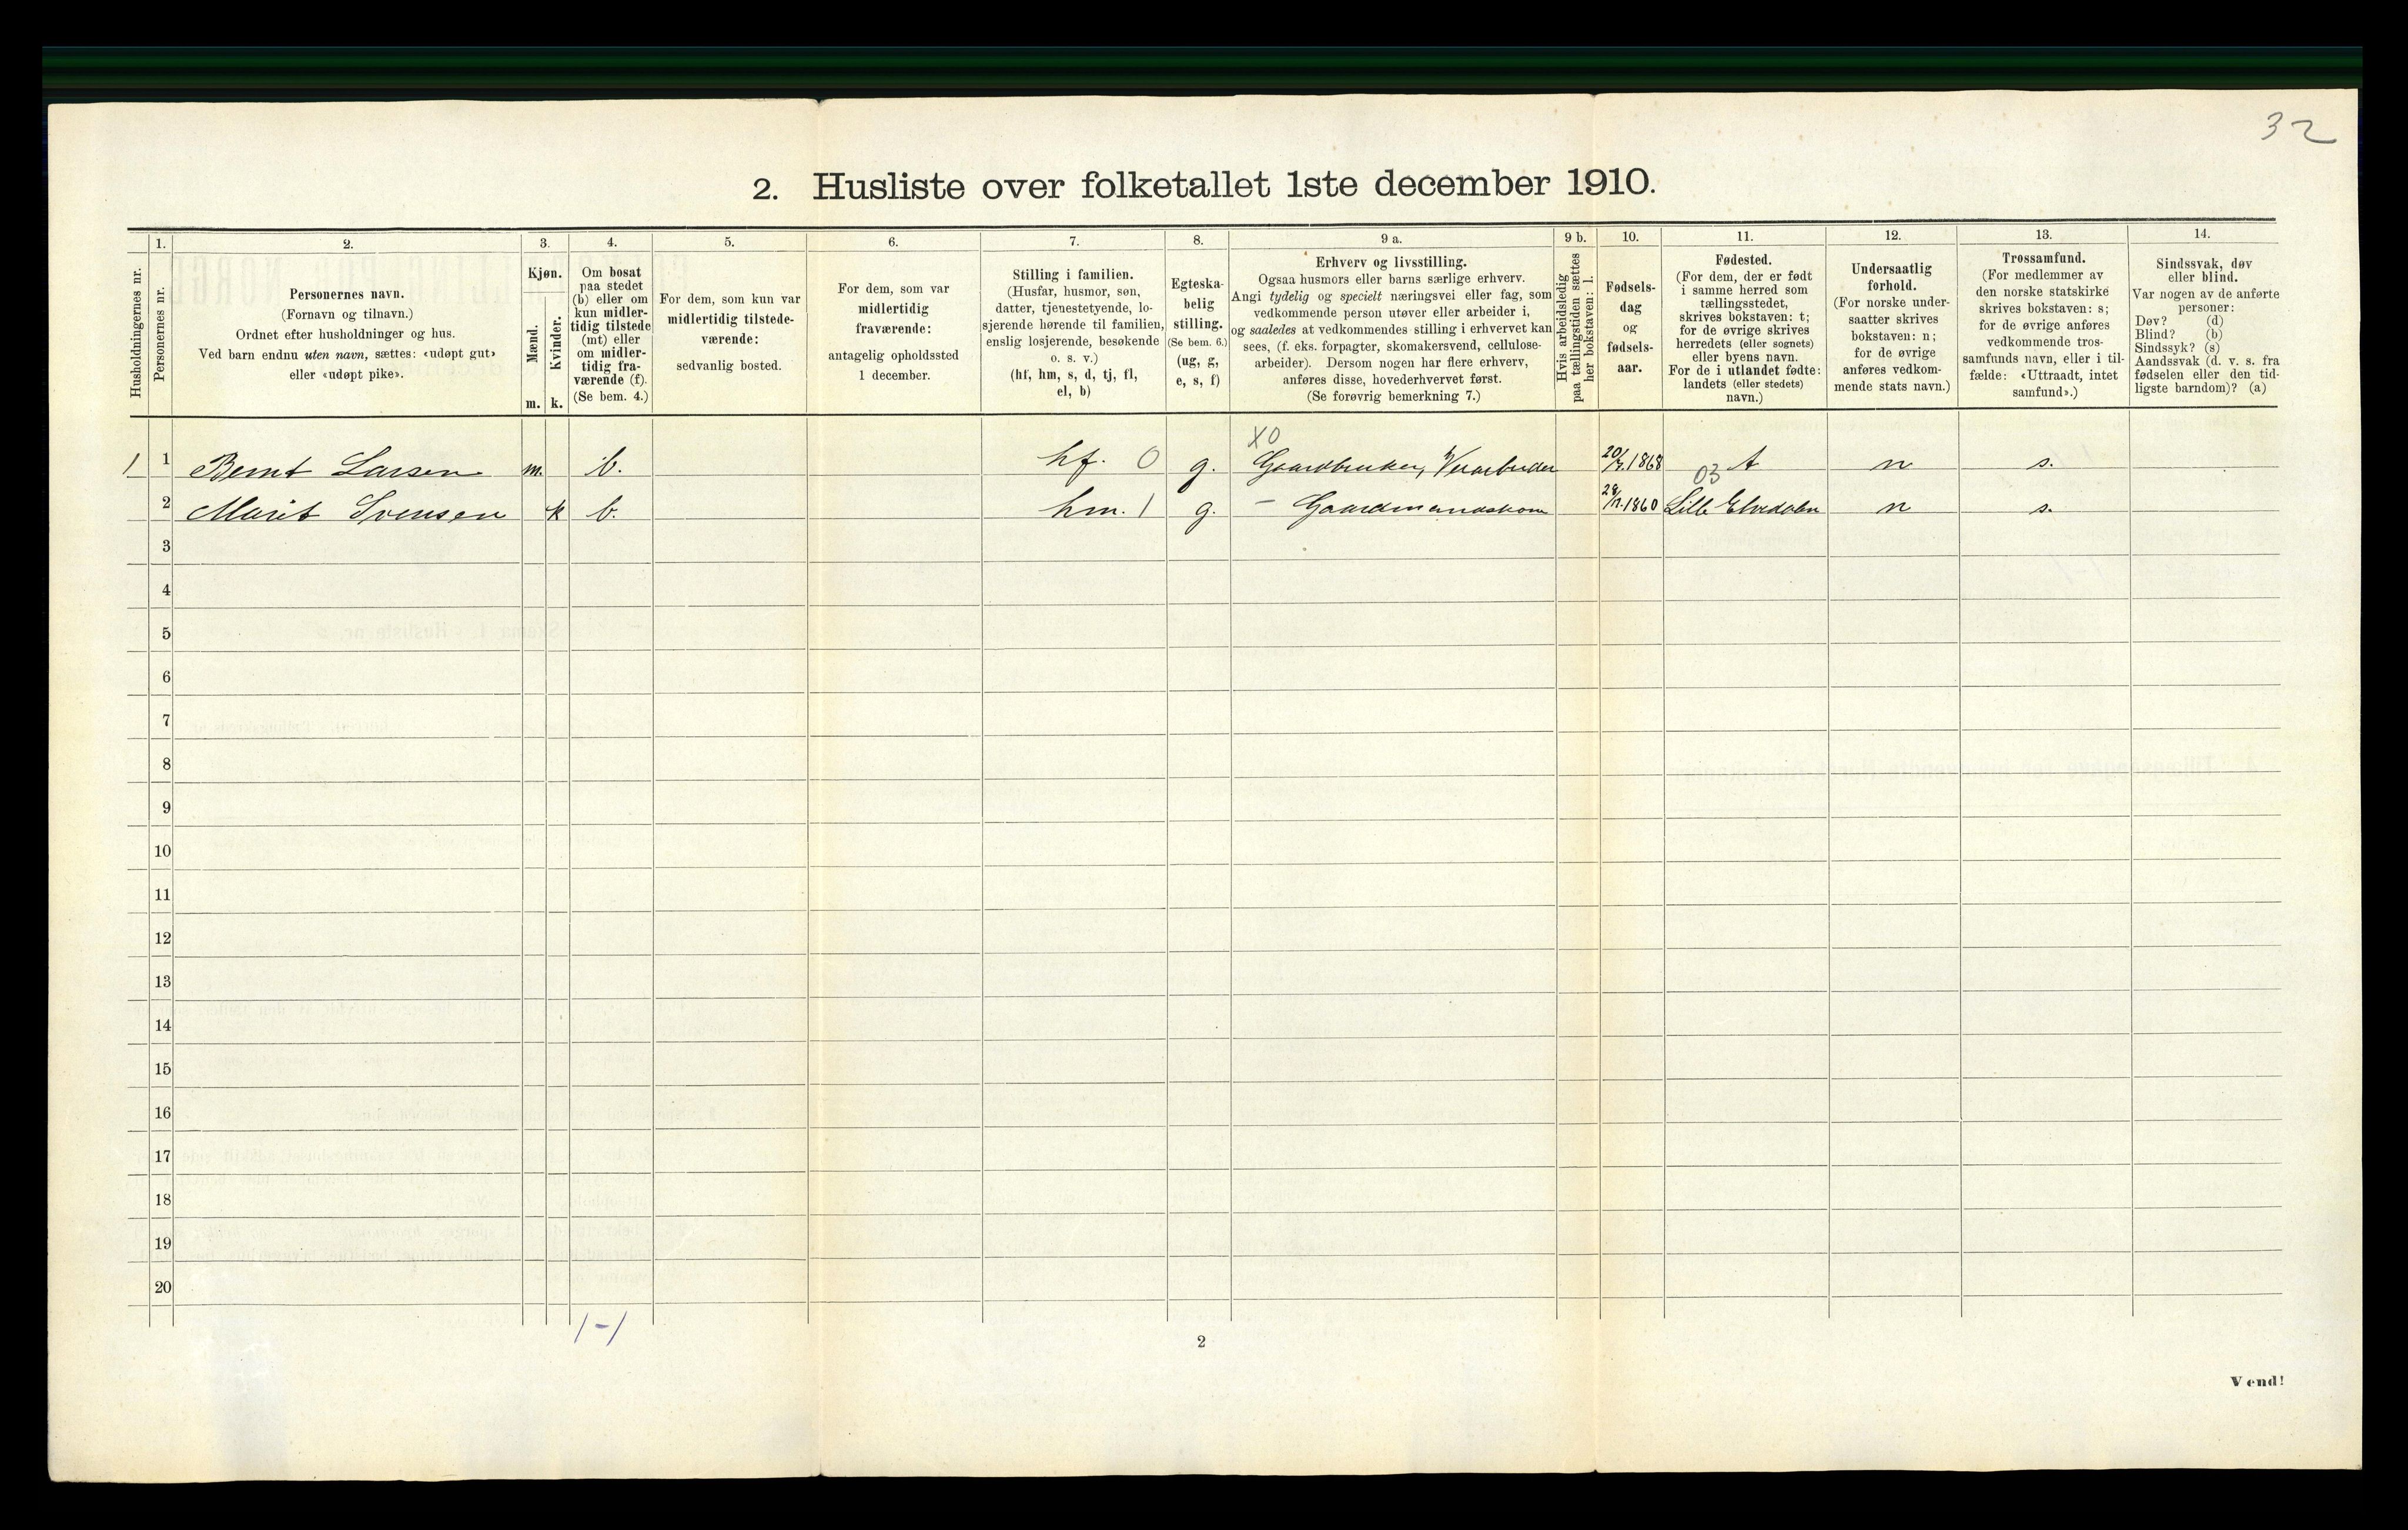 32
2. Husliste over folketallet 1ste december 1910.
Husholdningernes nr.
1.
Personernes nr.
2.
Personernes navn.
(Fornavn og tilnavn.)
Ordnet efter husholdninger og hus.
Ved barn endnu uten navn, sættes: «udøpt gut»
eller «udøpt pike».
3.
Kjøn.
Mænd.
Kvinder.
m. k.
4.
Om bosat
paa stedet
(b) eller om
kun midler-
tidig tilstede
(mt) eller
om midler-
tidig fra-
værende (f).
(Se bem. 4.)
5.
For dem, som kun var
midlertidig tilstede-
værende:
sedvanlig bosted.
6.
For dem, som var
midlertidig
fraværende:
antagelig opholdssted
1 december.
7.
Stilling i familien.
(Husfar, husmor, søn,
datter, tjenestetyende, lo-
sjerende hørende til familien,
enslig losjerende, besøkende
o. s. v.)
(hf, hm, s, d, tj, fl,
el, b)
8.
Egteska-
belig
stilling.
(Se bem. 6.)
(ug, g,
e, s, f)
9 a.
Erhverv og livsstilling.
Ogsaa husmors eller barns særlige erhverv.
Angi tydelig og specielt næringsvei eller fag, som
vedkommende person utøver eller arbeider i,
og saaledes at vedkommendes stilling i erhvervet kan
sees, (f. eks. forpagter, skomakersvend, cellulose-
arbeider). Dersom nogen har flere erhverv,
anføres disse, hovederhvervet først.
(Se forøvrig bemerkning 7.)
9 b.
Hvis arbeidsledig
paa tællingstiden sættes
her bokstaven: l.
10.
Fødsels-
dag
og
fødsels-
aar.
11.
Fødested.
(For dem, der er født
i samme herred som
tællingsstedet,
skrives bokstaven: t;
for de øvrige skrives
herredets (eller sognets)
eller byens navn.
For de i utlandet fødte:
landets (eller stedets)
navn.)
12.
Undersaatlig
forhold.
(For norske under-
saatter skrives
bokstaven: n;
for de øvrige
anføres vedkom-
mende stats navn.)
13.
Trossamfund.
(For medlemmer av
den norske statskirke
skrives bokstaven: s;
for de øvrige anføres
vedkommende tros-
samfunds navn, eller i til-
fælde: «Uttraadt, intet
samfund».)
14.
Sindssvak, døv
eller blind.
Var nogen av de anførte
personer:
Døv? (d)
Blind? (b)
Sindssyk? (s)
Aandssvak (d. v. s. fra
fødselen eller den tid-
ligste barndom)? (a)
X0
1 1 Bernt Larsen m. b. hf. 0 g. Gaardbruker, 20/ 1868 t n s.
03
2 Marit Svensen k b. hm. 1 g. - Gaardmandskone 28/ 1860 Lille Elvedalen n s.
3
4
5
6
7
8
9
10
11
12
13
14
15
16
17
18
19
20
1-1
2
Vend!